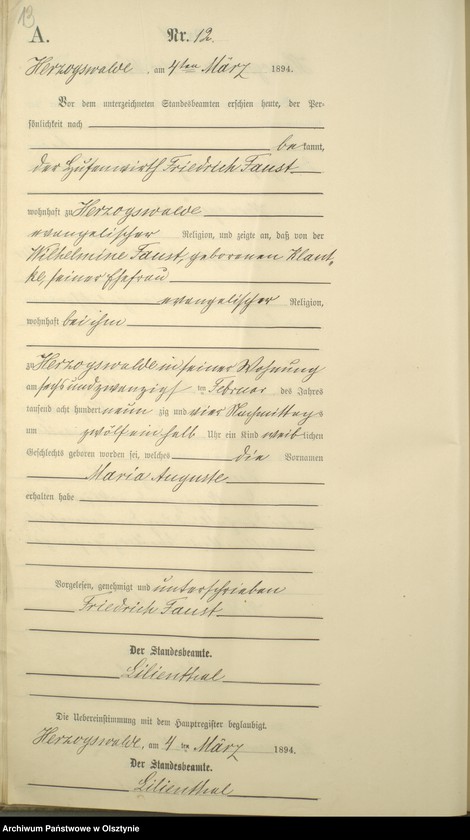 13
A.
Nr. 12.
Herzogswalde, am 4ten März 1894.
Vor dem unterzeichneten Standesbeamten erschien heute, der Per-
sönlichkeit nach
bekannt,
der Hufenwirth Friedrich Faust
wohnhaft zu Herzogswalde
evangelischer Religion, und zeigte an, daß von der
Wilhelmine Faust, geborenen Klant,
ke, seiner Ehefrau
evangelischer Religion,
wohnhaft bei ihm
zu Herzogswalde in seiner Wohnung
am sechsundzwanzigst ten Februar des Jahres
tausend acht hundert neun zig und vier Nachmittags
um zwölfeinhalb Uhr ein Kind weiblichen
Geschlechts geboren worden sei, welches die Vornamen
Maria Auguste
erhalten habe
Vorgelesen, genehmigt und unterschrieben
Friedrich Faust
Der Standesbeamte.
Lilienthal
Die Uebereinstimmung mit dem Hauptregister beglaubigt.
Herzogswalde, am 4 ten März 1894.
Der Standesbeamte.
Lilienthal
Archiwum Państwowe w Olsztynie